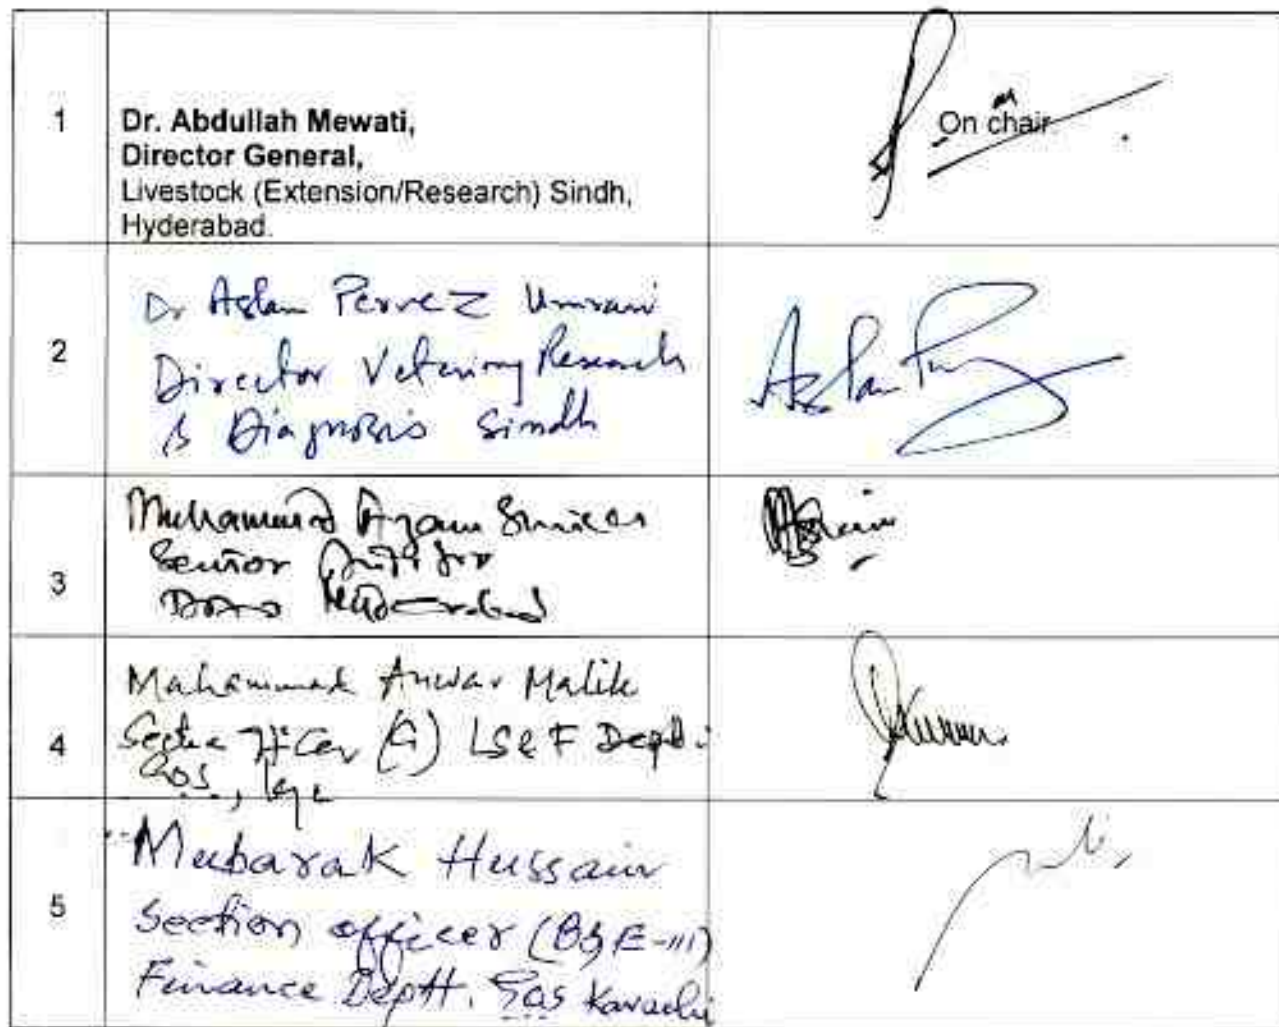 1
Dr. Abdullah Mewati,
Director General,
Livestock (Extension/Research) Sindh,
Hyderabad.
On chair.
2
Dr Aslam Pervez Umrani
Director Veterinary Research
& Diagnosis Sindh
Aslam
3
Muhammad Azam
Senior Auditor
Hyderabad
4
Muhammad Anwar Malik
Section Officer (G) LS&F Deptt:
GOS,
5
Mubarak Hussain
Section officer (B&E-III)
Finance Deptt. GoS Karachi